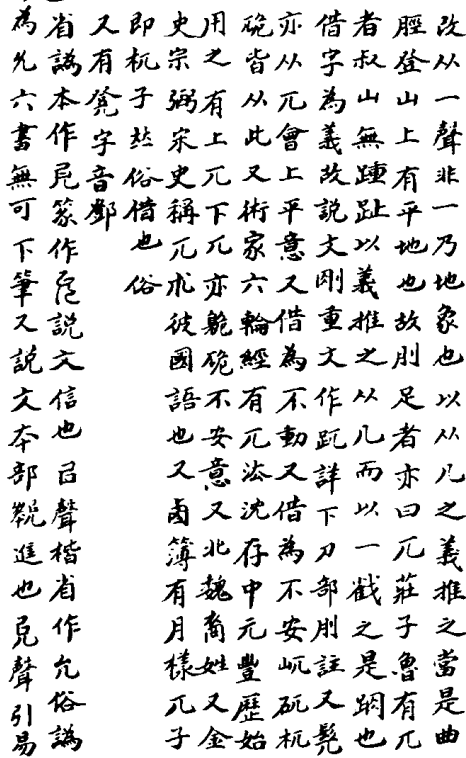 改从一聲非一乃地象也以从几之義推之當是曲
脛登山上有平地也故刖足者亦曰兀莊子魯有兀
者叔山無踵趾以義推之从几而以一戳之是跀也
借字為義故說文刚重文作趴詳下刀部刖註又髡
亦从兀會上平意又借為不動又借為不安屼矹杌
硊皆从此又術家六輪經有兀法沈存中元豐歷始
用之有上兀下兀亦鼿硊不安意又北魏裔姓又金
史宗弼宋史稱兀朮彼國語也又鹵簿有月樣兀子
即杌子玆俗借也俗
又有凳字音鄧
省譌本作篆作說文信也㠯聲楷省作允俗譌
為允六書無可下筆又說文本部進也聲引易